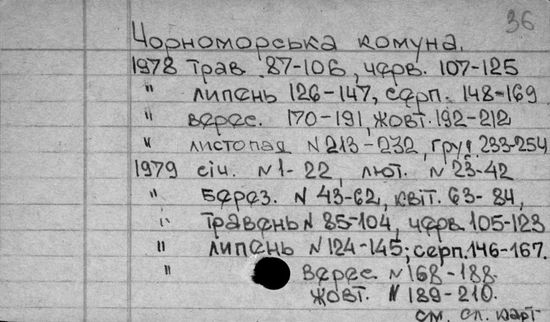 36
Чорноморська комуна.
1978 трав. 87-106, черв. 107-125
" липень 126-147, серп. 148-169
" верес. 170-191, жовт. 192-212
" листопад N 213-232, груд. 233-254
1979 січ. N 1-22, лют. N 23-42
" берез. N 43-62, квіт. 63-84,
" травень N 85-104, черв. 105-123
" липень N 124-145; серп. 146-167.
" верес. N 168-188.
жовт. N 189-210.
см. сл. карт